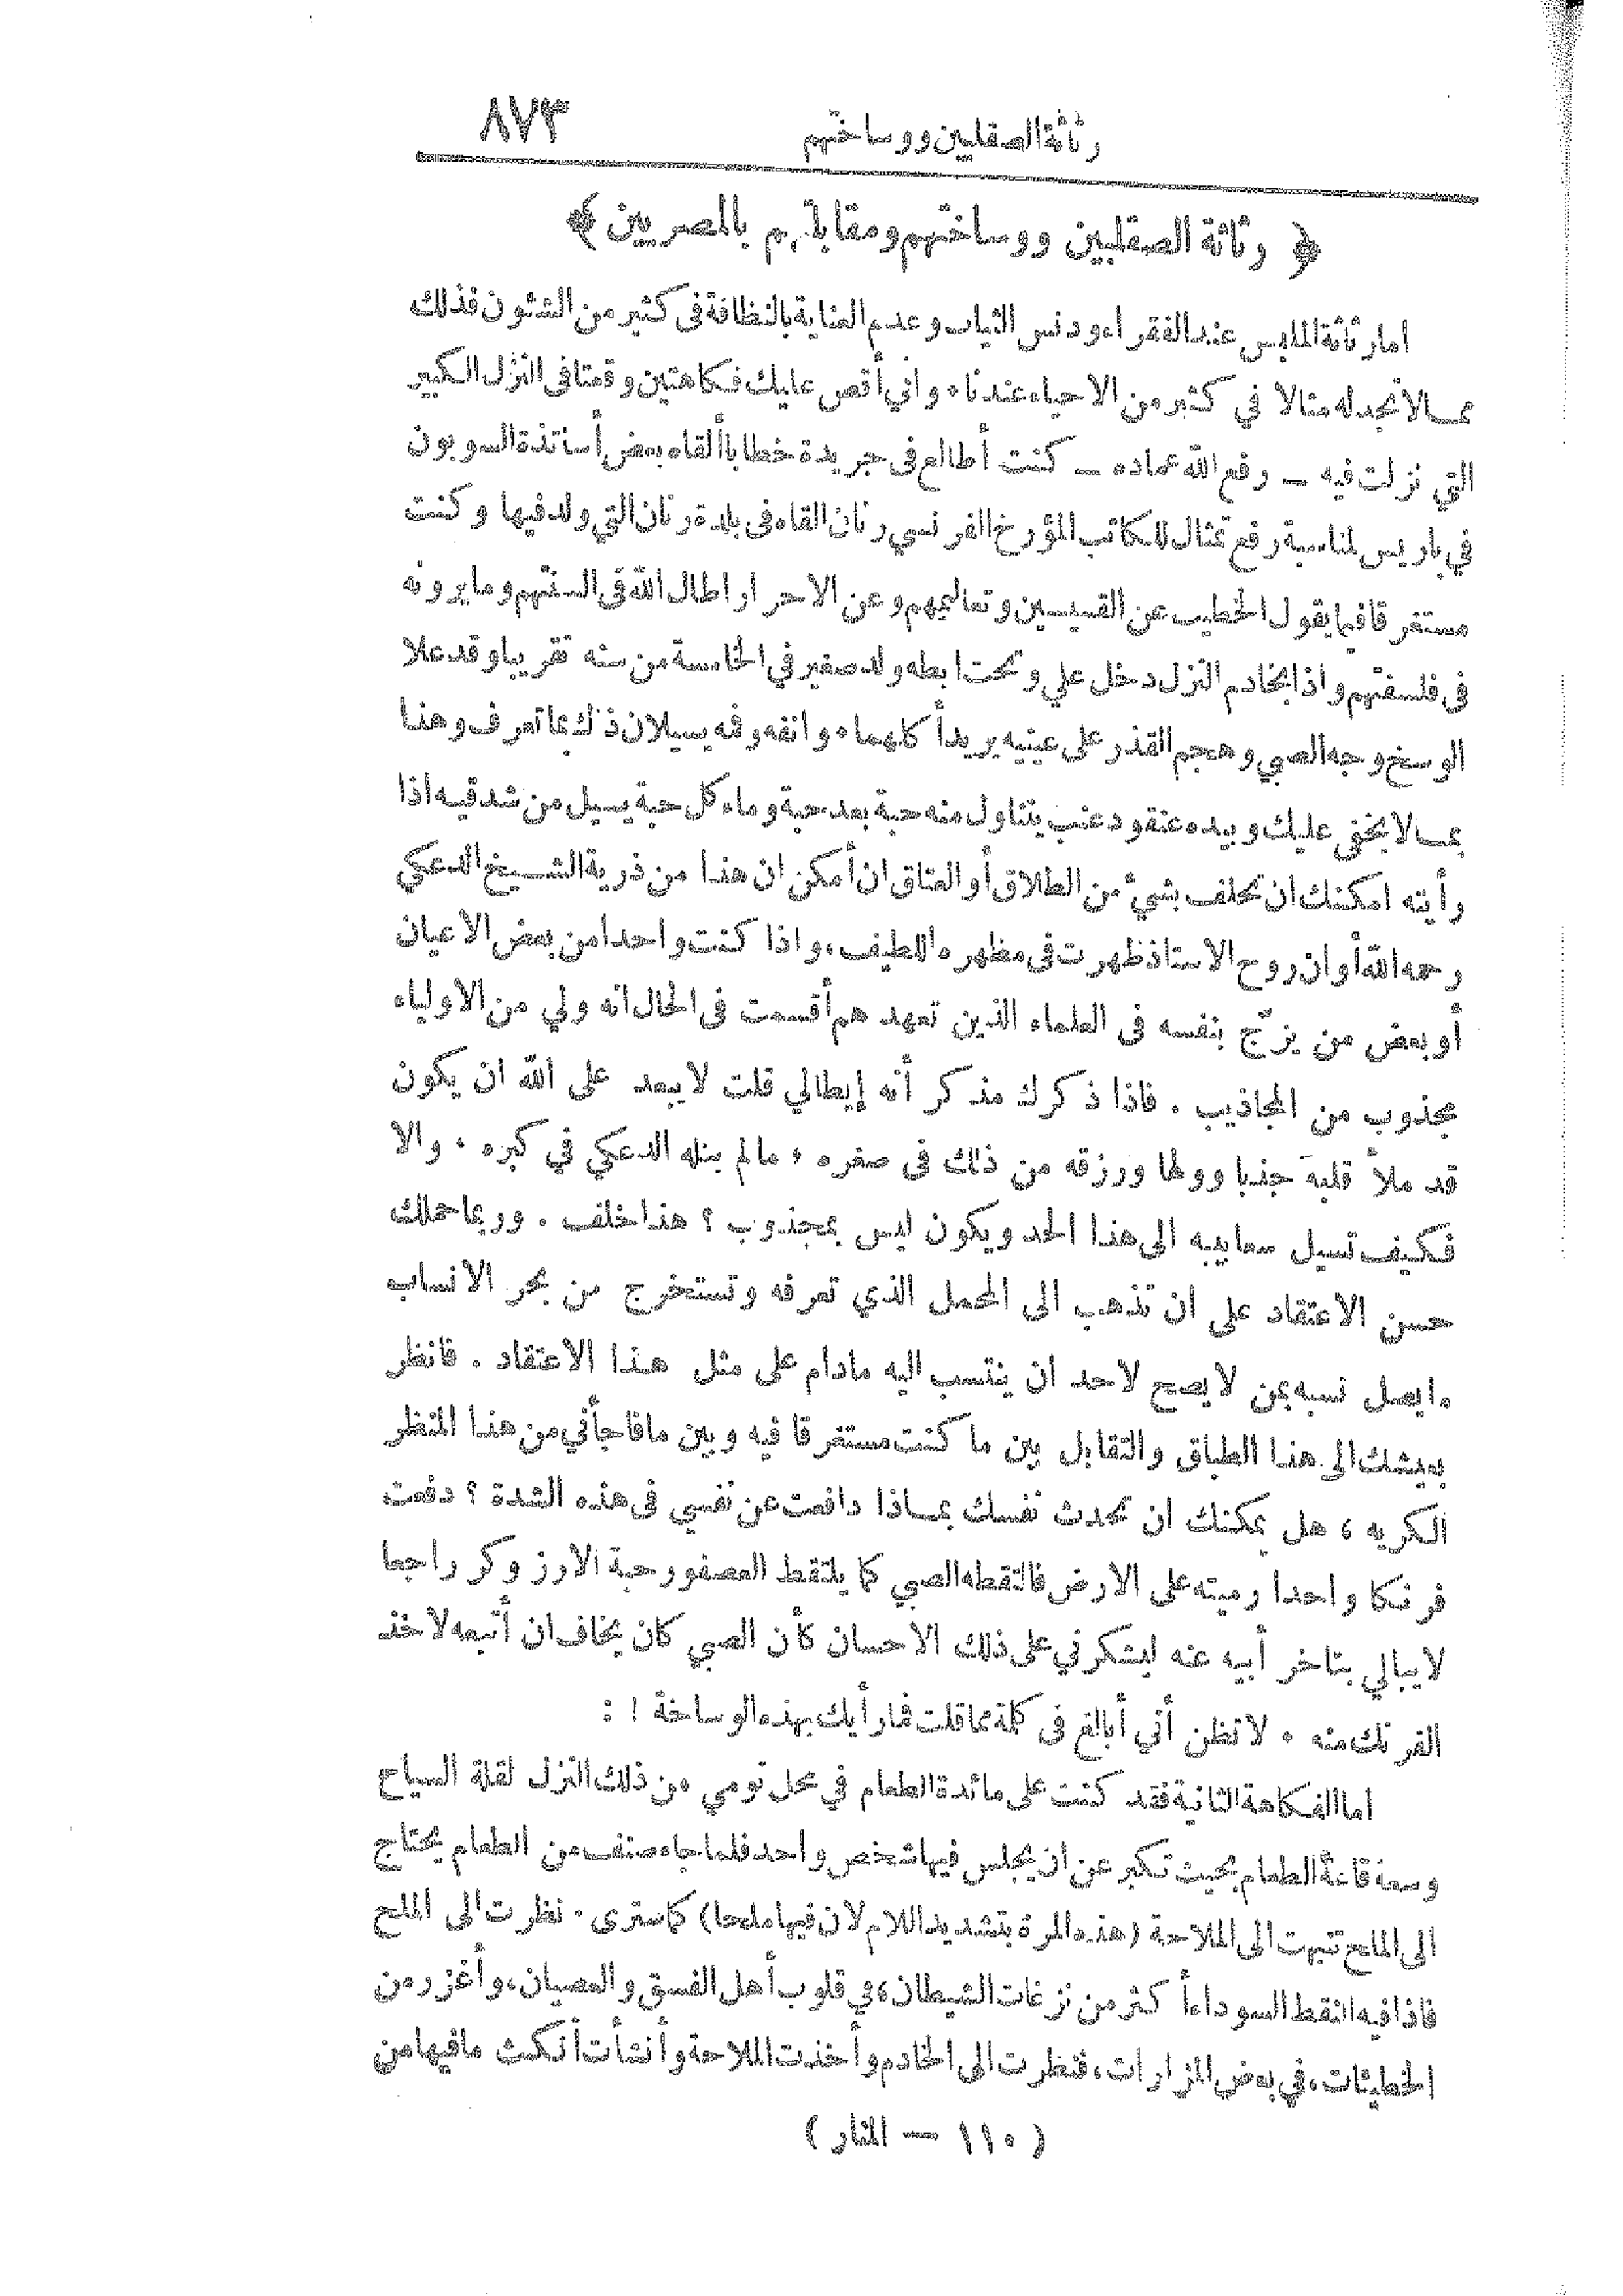 رثاثة الصقليين ووساختهم ٨٧٣
﴿ رثاثة الصقليين ووساختهم ومقابلتهم بالمصريين ﴾
اما رثاثة الملابس عند الفقراء ودنس الثياب وعدم العناية بالنظافة فى كثير من الشئون فذلك
مما لا تجد له مثالا في كثير من الاحياء عندنا ، واني أقص عليك فكاهتين وقعتا فى النزل الكبير
التي نزلت فيه ــ رفع الله عماده ــ كنت أطالع فى جريدة خطابا ألقاه بعض أساتذة السوربون
في باريس لمناسبة رفع تمثال للكاتب المؤرخ الفرنسي رنان القاه فى بلدة رنان التي ولد فيها وكنت
مستغرقا فيما يقول الخطيب عن القسيسين وتعاليمهم وعن الاحرار اطال الله فى السنتهم وما يرونه
فى فلسفتهم واذا بخادم النزل دخل علي وتحت ابطه ولد صغير في الخامسة من سنه تقريبا وقد علا
الوسخ وجه الصبي وهجم القذر على عينيه يريد أكلهما ، وانفه وفمه يسيلان ذاك بما تعرف وهذا
بما لا يخفى عليك وبيده عنقود عنب يتناول منه حبة بعد حبة وماء كل حبة يسيل من شدقيه اذا
رأيته امكنك ان تحلف بشيء من الطلاق أو العتاق ان أمكن ان هذا من ذرية الشيخ الدعكي
رحمه الله أو ان روح الاستاذ ظهرت فى مظهره اللطيف ، واذا كنت واحدا من بعض الاعيان
أو بعض من يزجّ بنفسه فى العلماء الذين تعهد هم أقسمت فى الحال انه ولي من الاولياء
مجذوب من المجاذيب . فاذا ذكرك مذكر أنه إيطالي قلت لا يبعد على الله ان يكون
قد ملأ قلبه جذبا وولها ورزقه من ذلك فى صغره ، ما لم ينله الدعكي في كبره ، والا
فكيف تسيل سعابيبه الى هذا الحد ويكون ليس بمجذوب ؟ هذا خلف . وربما حملك
حسن الاعتقاد على ان تذهب الى المحمل الذي تعرفه وتستخرج من بحر الانساب
ما يصل نسبه بمن لا يصح لاحد ان ينتسب اليه مادام على مثل هذا الاعتقاد . فانظر
بعيشك الى هذا الطباق والتقابل بين ما كنت مستغرقا فيه وبين ما فاجأني من هذا المنظر
الكريه ، هل يمكنك ان تحدث نفسك بماذا دافعت عن نفسي فى هذه الشدة ؟ دفعت
فرنكا واحدا رميته على الارض فالتقطه الصبي كما يلتقط العصفور حبة الارز وكر راجعا
لا يبالي بتاخر أبيه عنه ليشكرني على ذلك الاحسان كأن الصبي كان يخاف ان أتبعه لاخذ
الفرنك منه ، لا تظن أني أبالغ فى كلمة مما قلت فما رأيك بهذه الوساخة ! :
اما الفكاهة الثانية فقد كنت على مائدة الطعام في محل نومي من ذلك النزل لقلة السياح
وسعة قاعة الطعام بحيث تكبر عن ان يجلس فيها شخص واحد فلما جاء صنف من الطعام يحتاج
الى الملح تنبهت الى الملاحة (هذه المرة بتشديد اللام لان فيها ملحا) كما سترى . نظرت الى الملح
فاذا فيه النقط السوداء أكثر من نزغات الشيطان ، في قلوب أهل الفسق والعصيان ، وأغزر من
الخطيئات ، في بعض المزارات ، فنظرت الى الخادم وأخذت الملاحة وأنشأت أنكث ما فيها من
( ١١٠ — المنار )